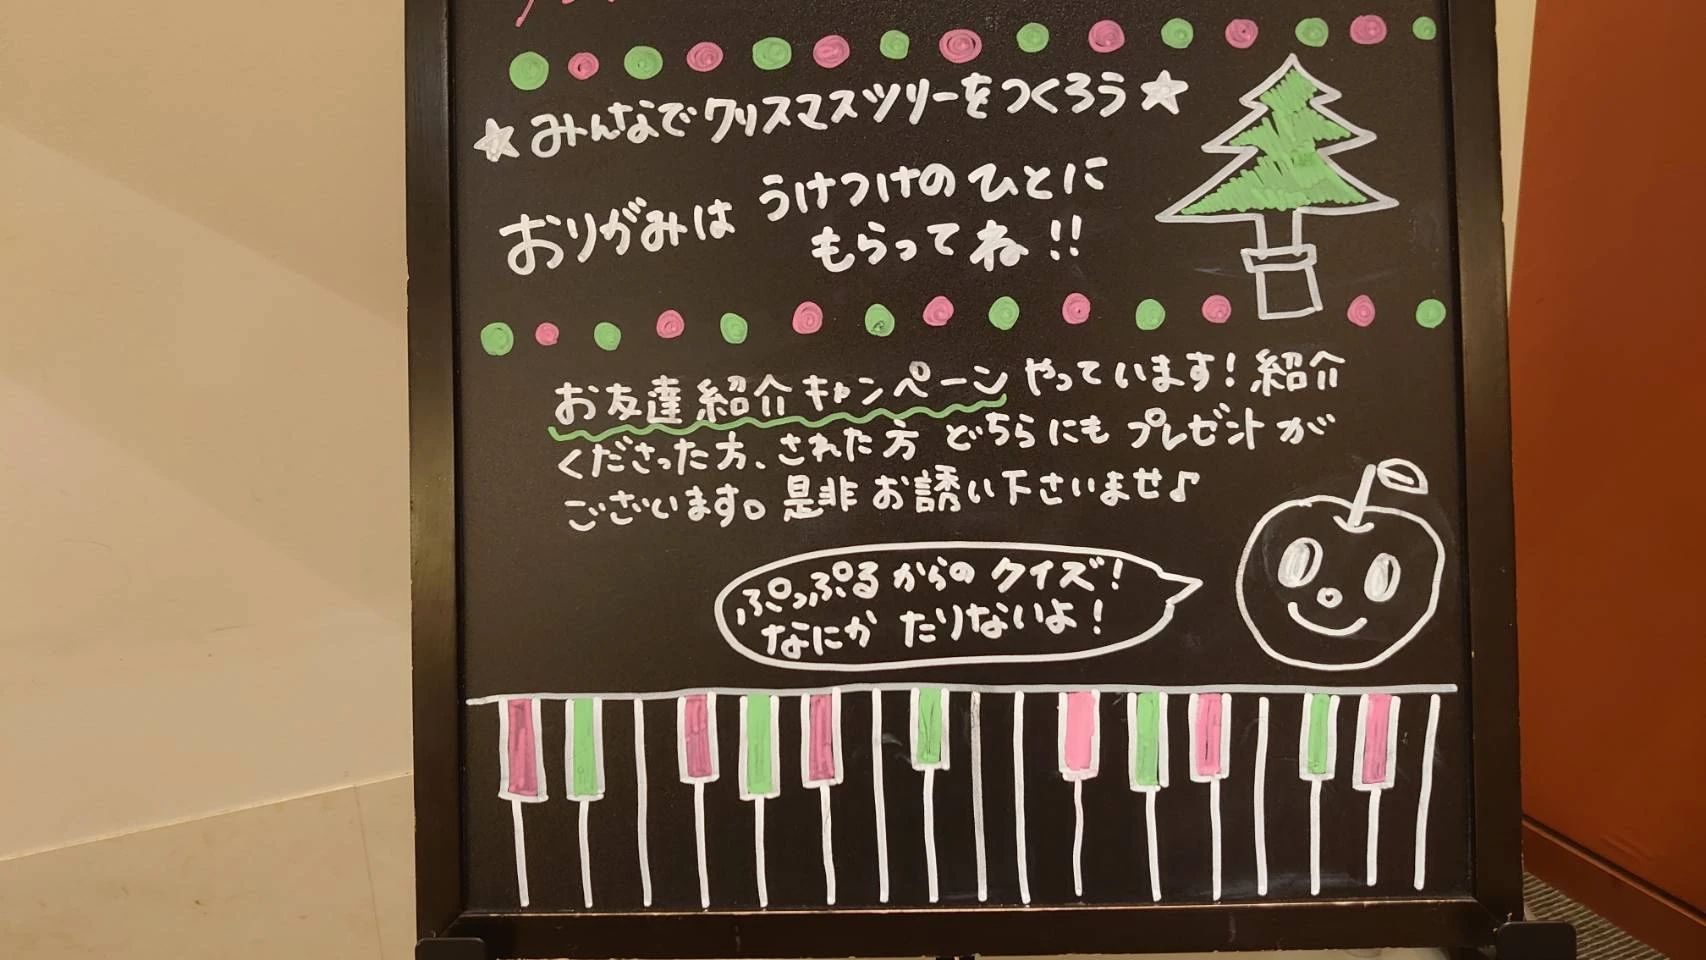 ☆みんなでクリスマスツリーをつくろう☆
おりがみは うけつけのひとに
もらってね!!
お友達紹介キャンペーンやっています!紹介
くださった方、された方 どちらにも プレゼントが
ございます。是非お誘い下さいませ♪
ぷっぷるからのクイズ!
なにか たりないよ!